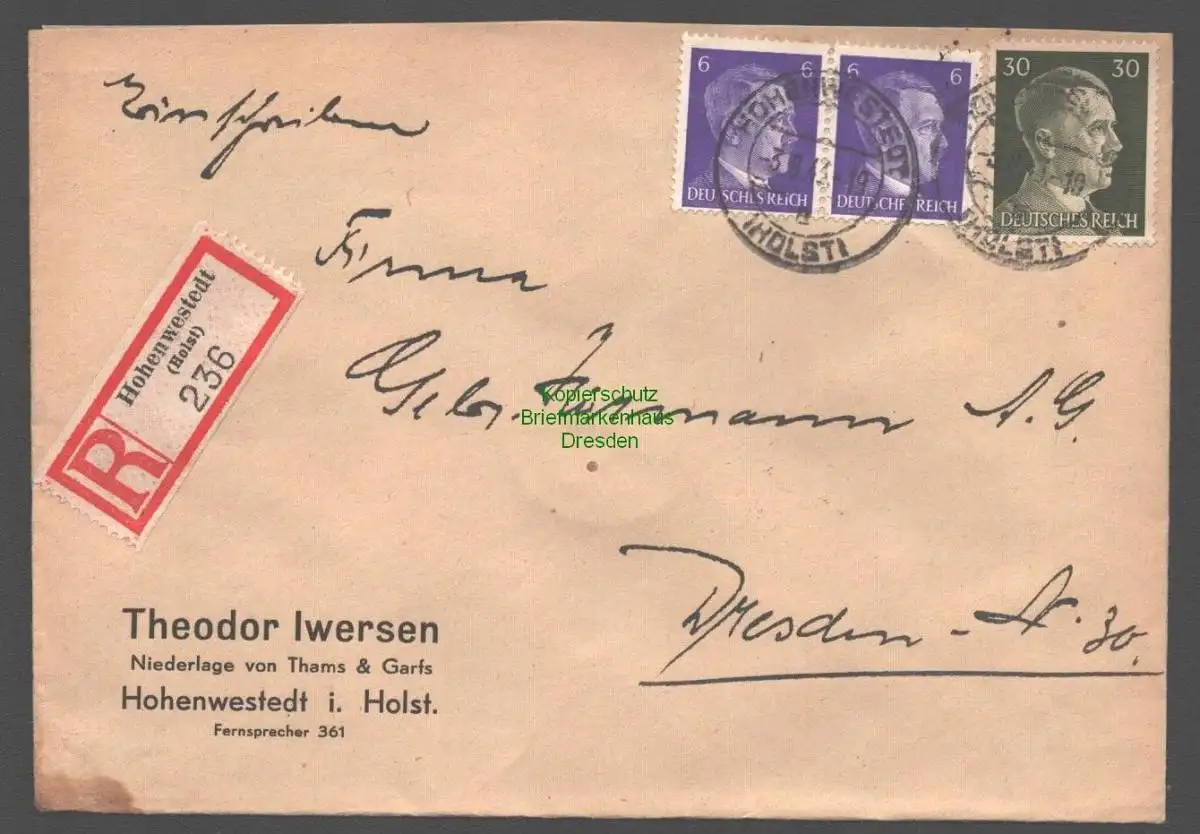 Einschreiben
6 6 6 6 30 30
DEUTSCHES REICH DEUTSCHES REICH DEUTSCHES REICH
HOHENWESTEDT
(HOLST)
(HOLST)
Firma
Hohenwestedt
(Holst)
236
R
Gebr. A. G.
Kopierschutz
Briefmarkenhaus
Dresden
Dresden - N. 30.
Theodor Iwersen
Niederlage von Thams & Garfs
Hohenwestedt i. Holst.
Fernsprecher 361